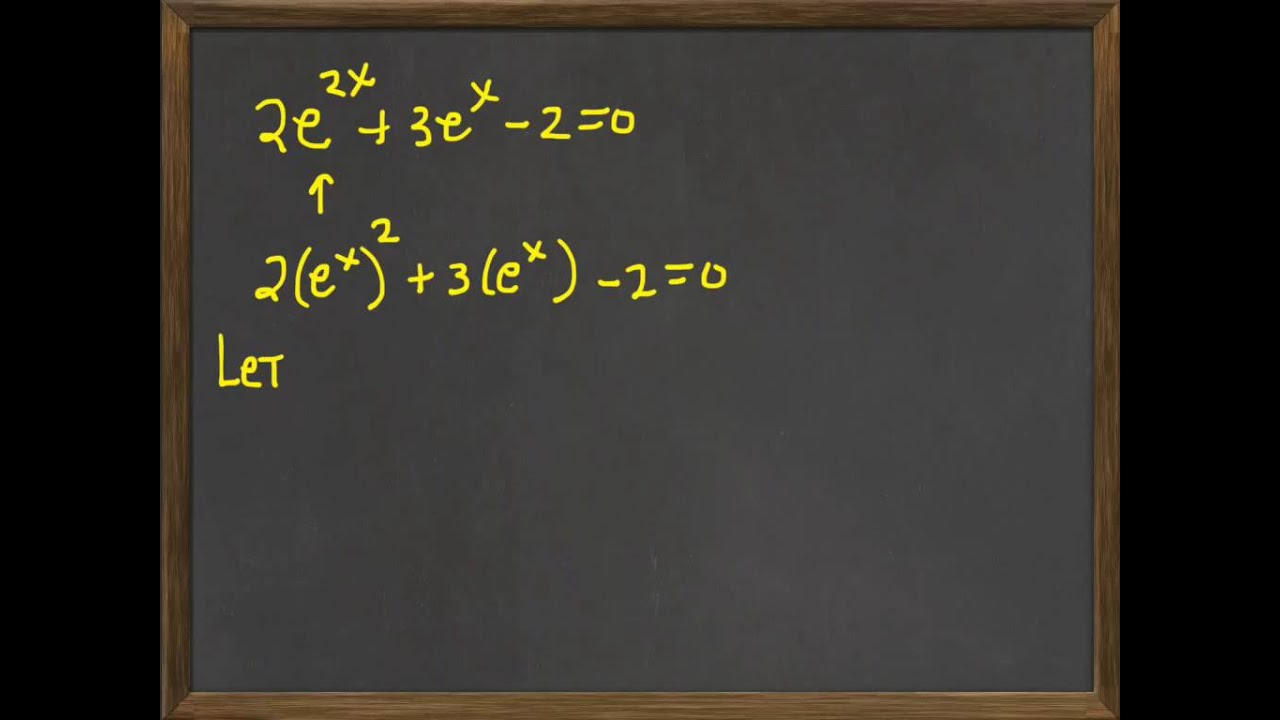 2e^{2x} + 3e^x - 2 = 0
↑
2(e^x)^2 + 3(e^x) - 2 = 0
LeT